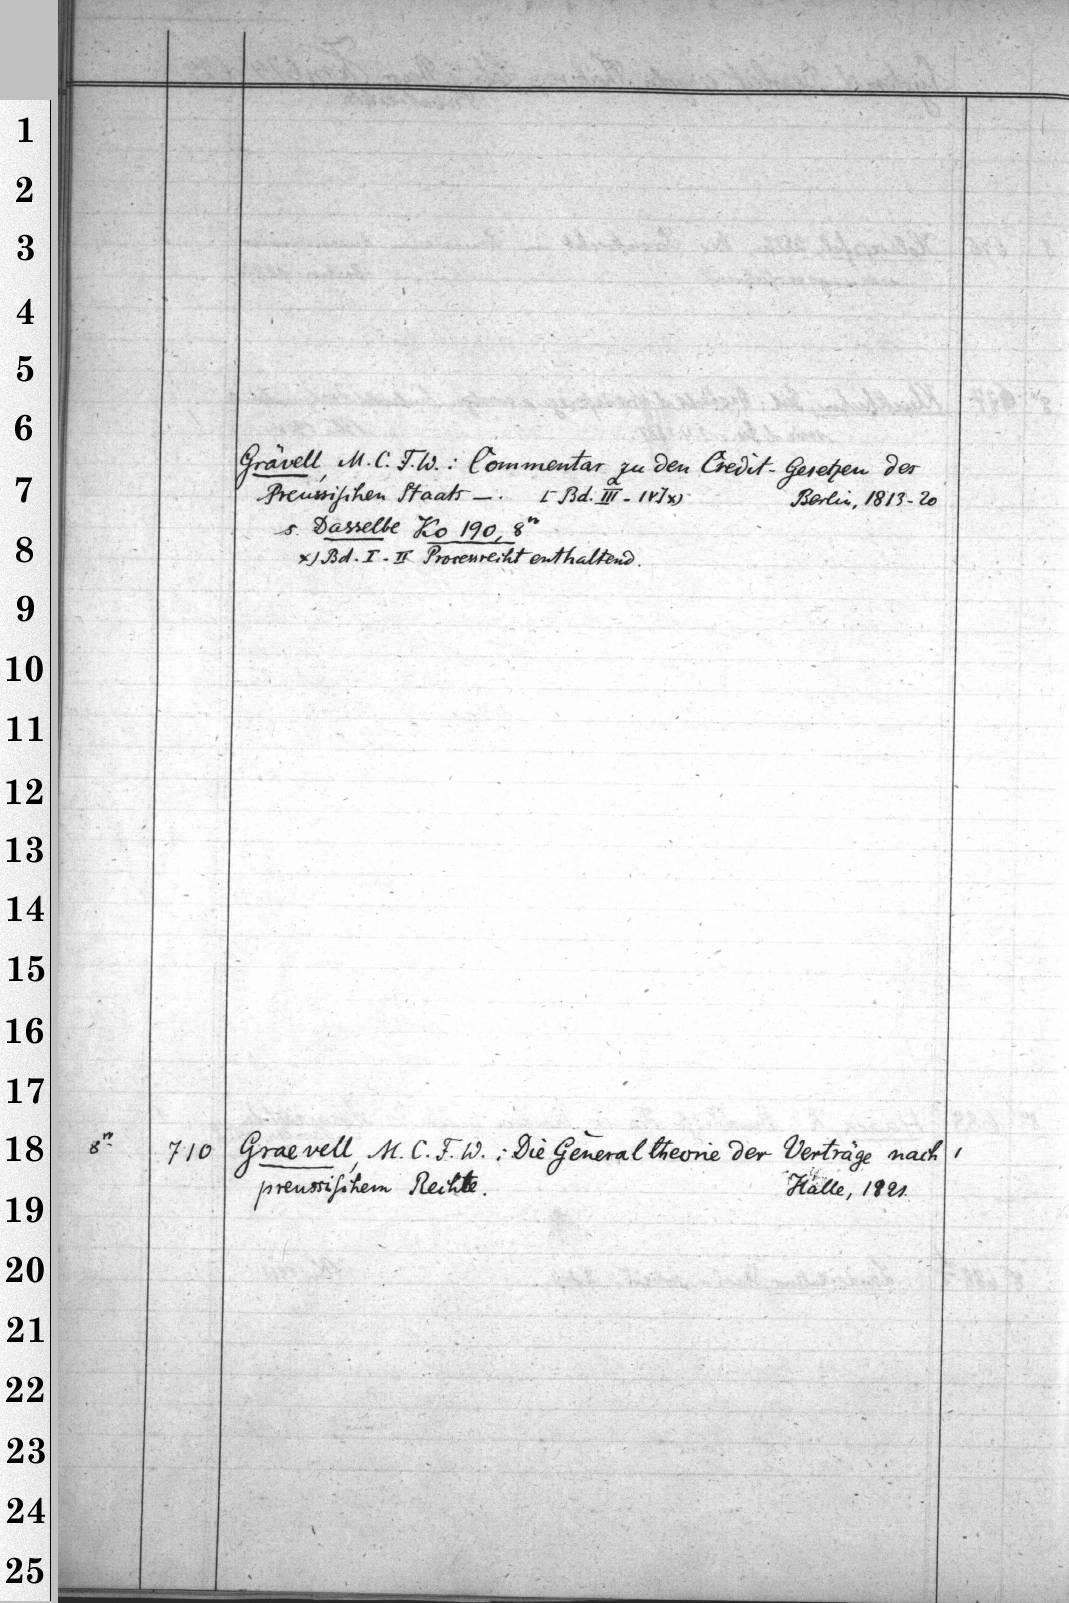 1
2
3
4
5
6
Grävell, M. C. F. W. : Commentar zu den Credit-Gesetzen des
7
Preussischen Staats —. [Bd. III - IV] x) Berlin, 1813-20
s. Dasselbe Ko 190, 8°
8
x) Bd. I - II Processrecht enthaltend.
9
10
11
12
13
14
15
16
17
18
8° 710 Graevell, M. C. F. W. : Die Generaltheorie der Verträge nach 1
preussischem Rechte. Halle, 1821
19
20
21
22
23
24
25